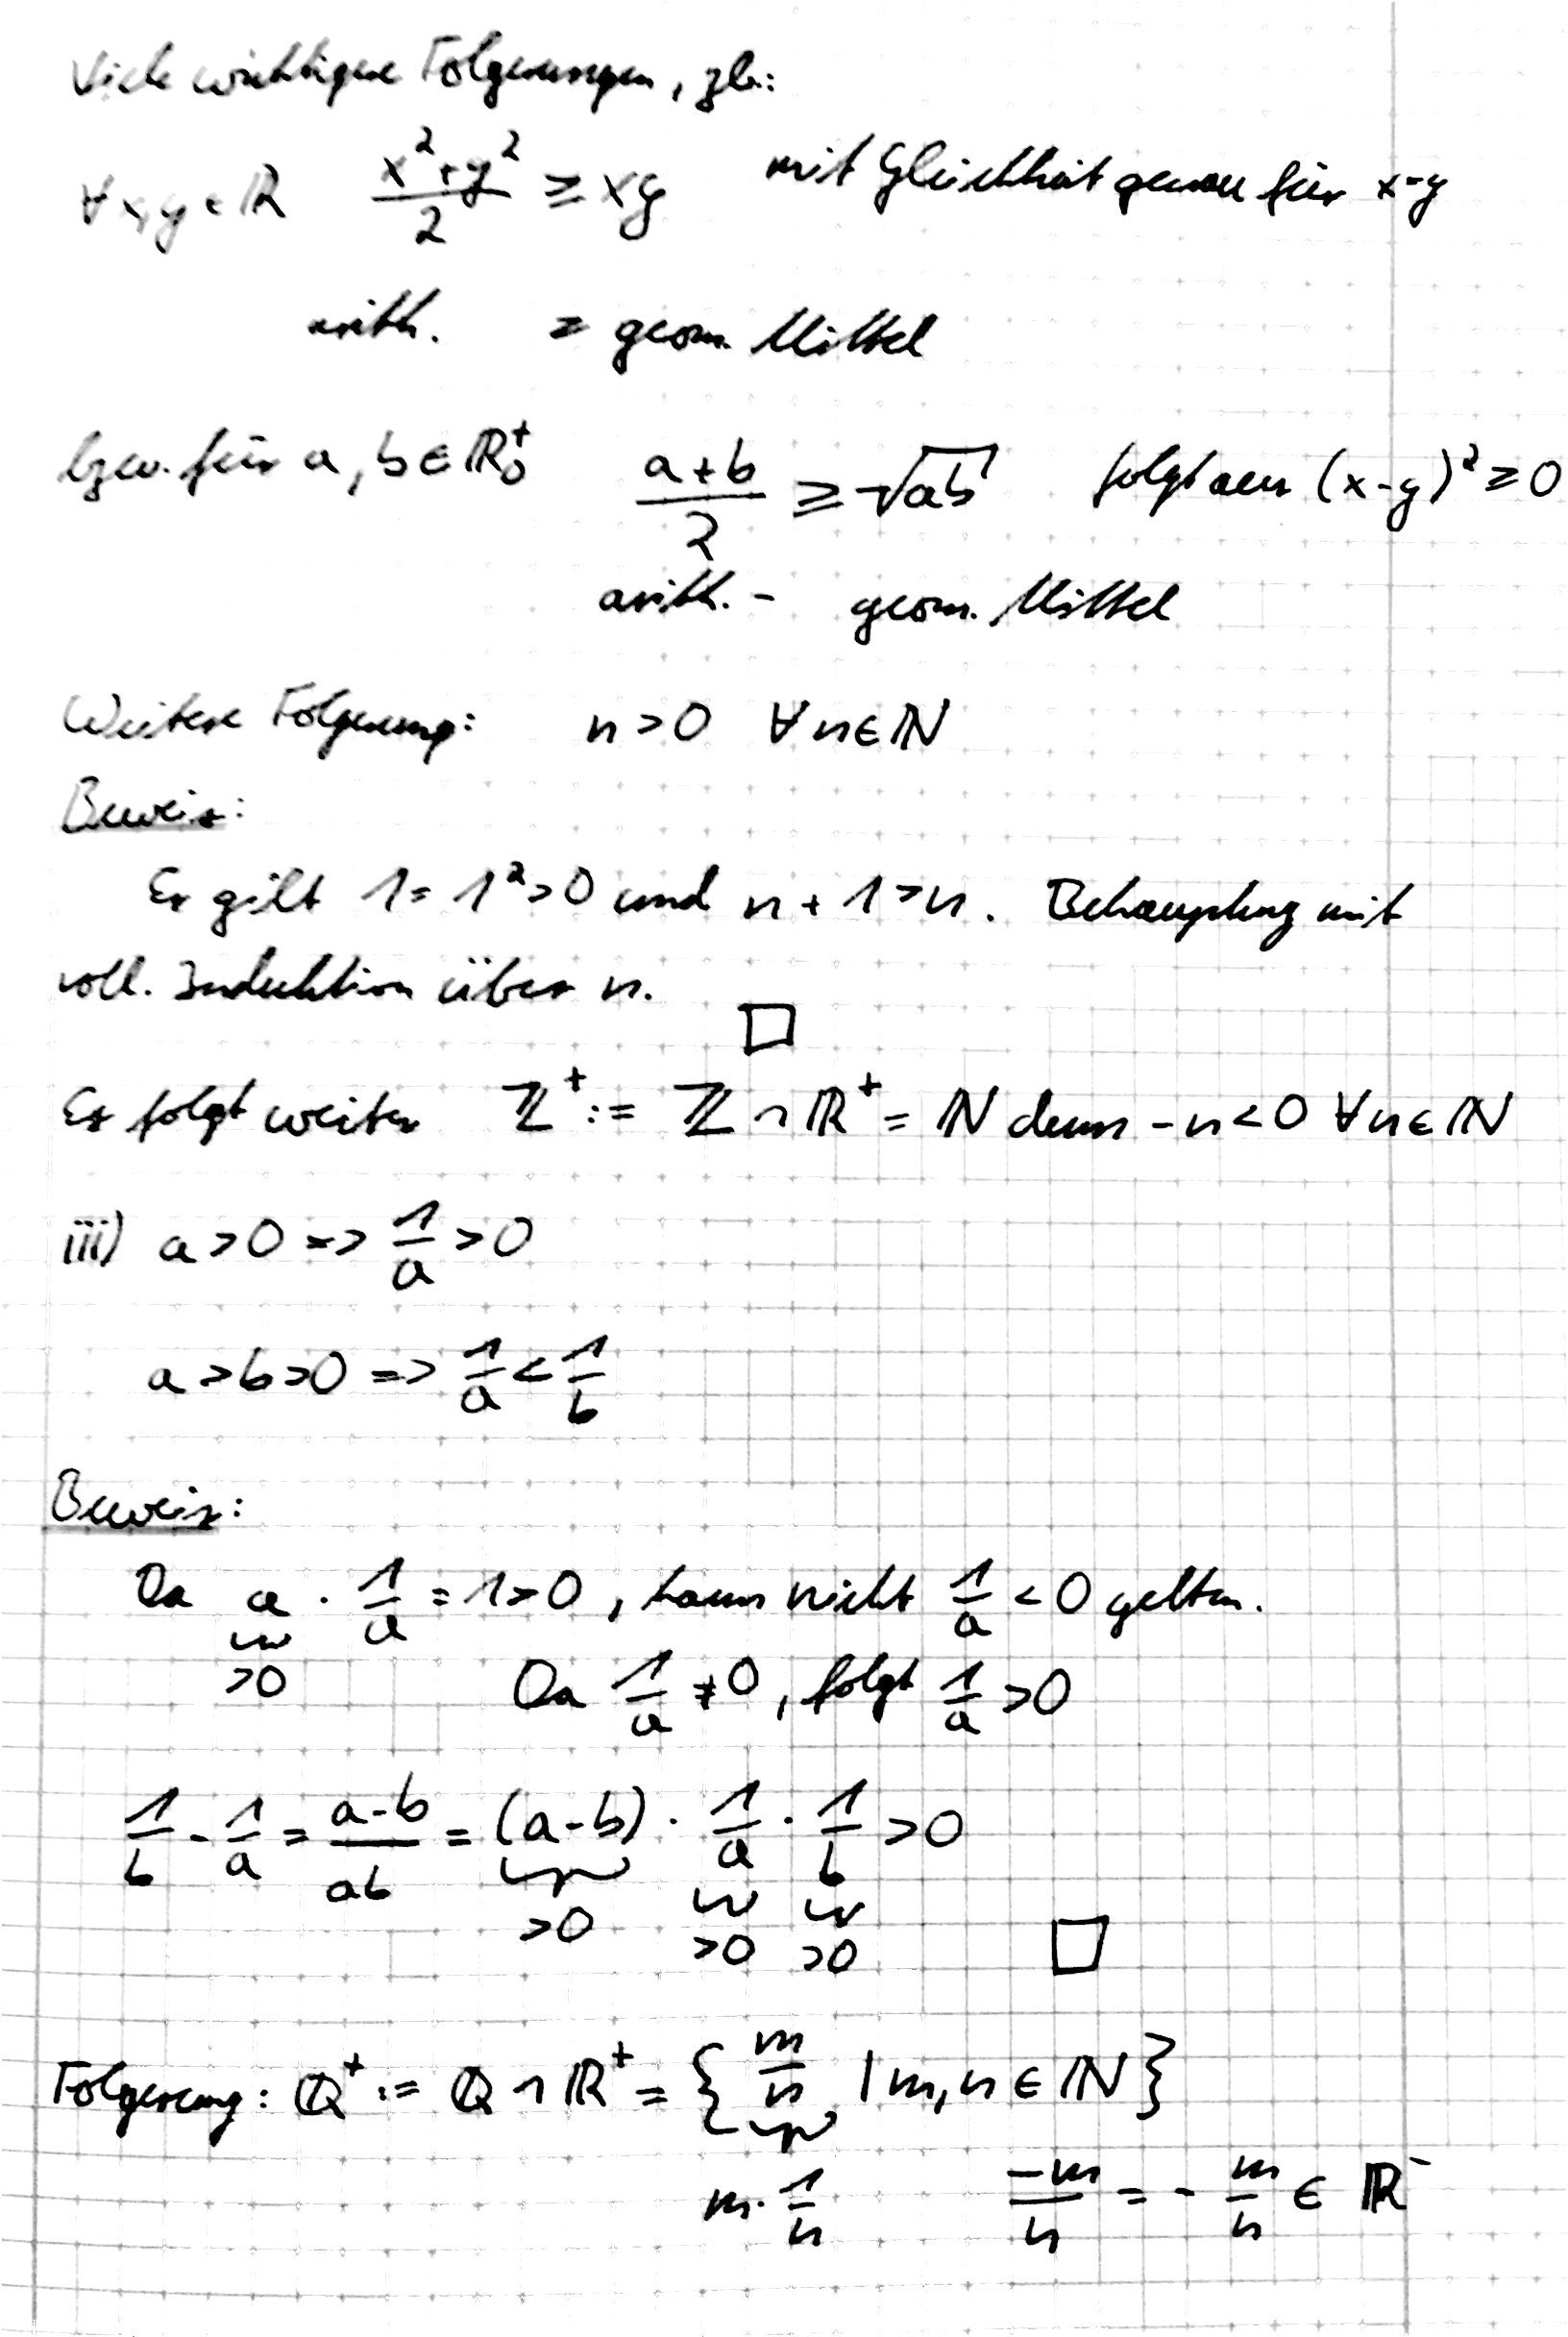 Viele wichtigere Folgerungen, zb.:
∀ x,y ∈ ℝ (x²+y²)/2 ≥ xy mit Gleichheit genau für x=y
arith. ≥ geom. Mittel
bzw. für a, b ∈ ℝ₀⁺ (a+b)/2 ≥ √(ab) folgt aus (x-y)² ≥ 0
arith. - geom. Mittel
Weitere Folgerung: n > 0 ∀ n ∈ ℕ
Beweis:
Es gilt 1 = 1² > 0 und n + 1 > n. Behauptung mit
voll. Induktion über n.
□
Es folgt weiter ℤ⁺ := ℤ ∩ ℝ⁺ = ℕ denn -n < 0 ∀ n ∈ ℕ
iii) a > 0 => 1/a > 0
a > b > 0 => 1/a < 1/b
Beweis:
Da a · 1/a = 1 > 0, kann nicht 1/a < 0 gelten.
>0 Da 1/a ≠ 0, folgt 1/a > 0
1/b - 1/a = (a-b)/ab = (a-b) · 1/a · 1/b > 0
>0 >0 >0 □
Folgerung: ℚ⁺ := ℚ ∩ ℝ⁺ = { m/n | m, n ∈ ℕ }
m · 1/n -m/n = - m/n ∈ ℝ⁻